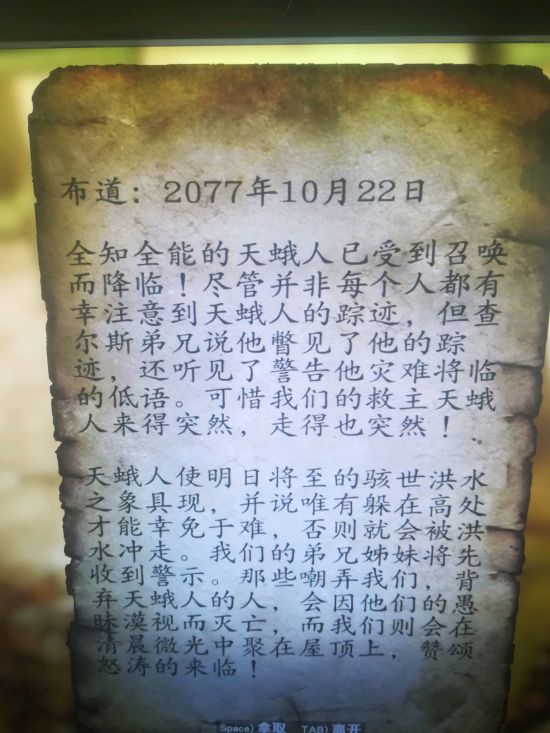 布道：2077年10月22日
全知全能的天蛾人已受到召唤
而降临！尽管并非每个人都有
幸注意到天蛾人的踪迹，但查
尔斯弟兄说他瞥见了他的踪
迹，还听见了警告他灾难将临
的低语。可惜我们的救主天蛾
人来得突然，走得也突然！
天蛾人使明日将至的骇世洪水
之象具现，并说唯有躲在高处
才能幸免于难，否则就会被洪
水冲走。我们的弟兄姊妹将先
收到警示。那些嘲弄我们，背
弃天蛾人的人，会因他们的愚
昧漠视而灭亡，而我们则会在
清晨微光中聚在屋顶上，赞颂
怒涛的来临！
Space) 拿取 TAB) 离开